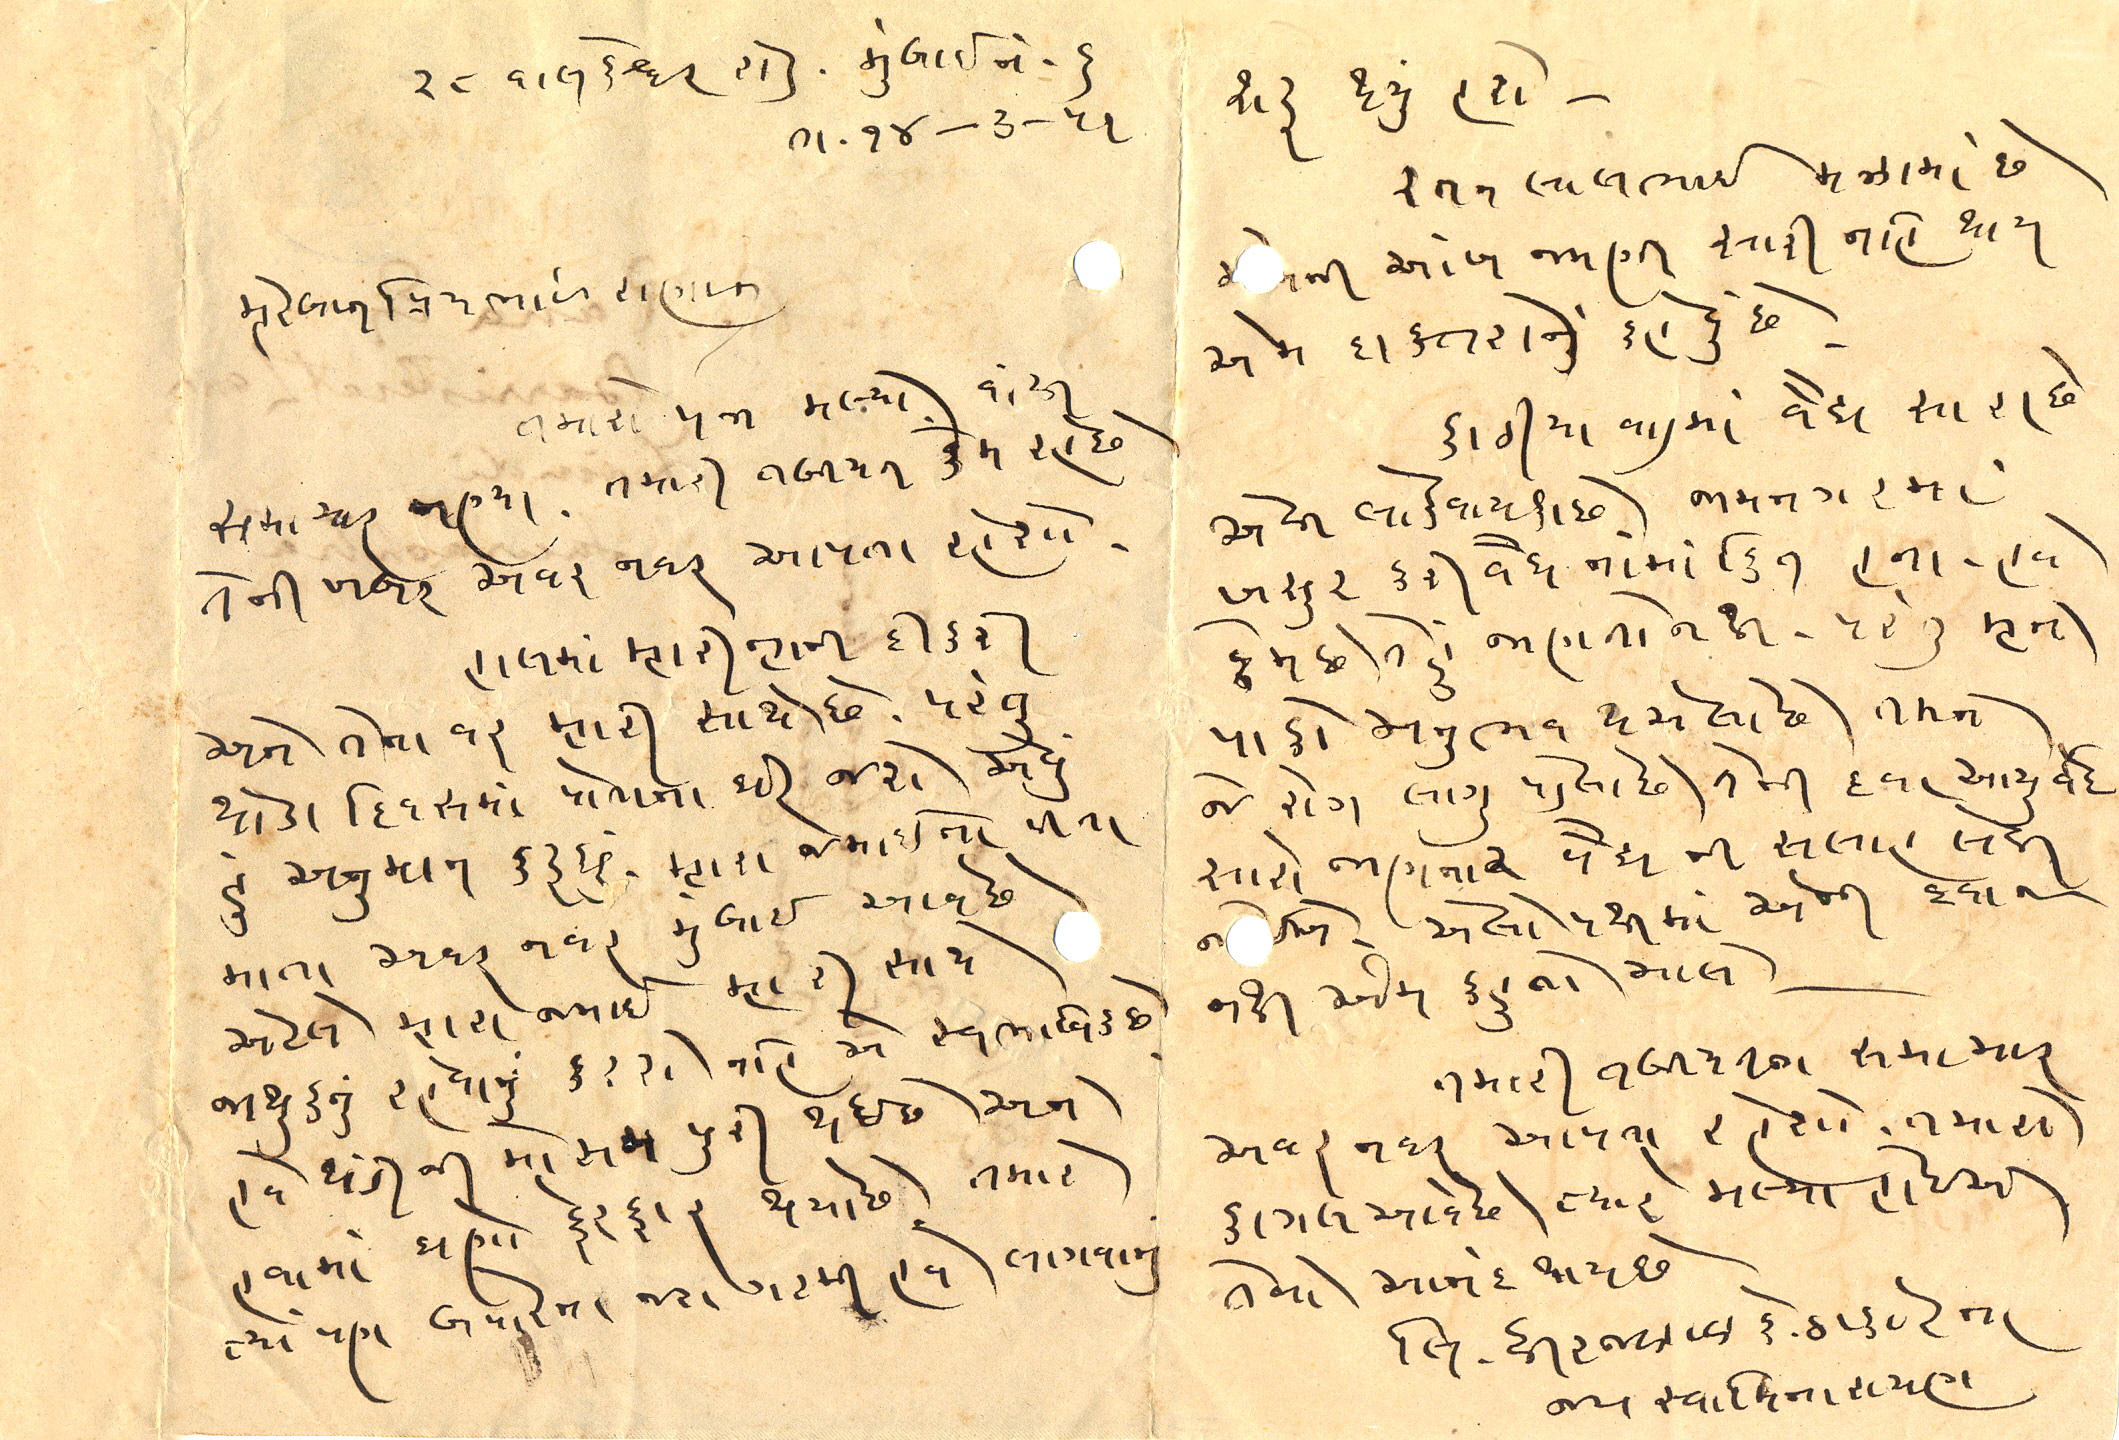 ૨૮ વાલકેશ્વર રોડ. મુંબાઈ નં. ૬
તા. ૧૪ – ૩ – ૫૧
મહેરબાન પ્રિય ભાઈ
તમારો પત્ર મલ્યો. વાંચી
સમાચાર જાણ્યા. તમારી તબીયત કેમ રહે છે
તેની ખબર અવર નવર આપતા રહેશો.
હાલમાં મ્હારી ન્હાની દીકરી
અને તેના વર મ્હારી સાથે છે. પરંતુ
થોડા દિવસમાં પોતાના ઘેર જશે એવું
હું અનુમાન કરૂં છું. મ્હારા જમાઈના પીતા
માતા અવર નવર મુંબાઈ આવે છે
એટલે મારા જમાઈ મ્હારી સાથે
જાથુકનું રહેવાનું કરશે નહિ એ સ્વભાવિક છે.
હવે થંડી ની મોસમ પુરી થઈ છે અને
હવામાં ઘણો ફેરફાર થયો છે. તમારે
ત્યાં પણ બપોરના જરા ગરમી હવે લાગવાનું
શરૂ થયું હશે –
રતન લાલભાઈ મઝામાં છે
આંખ જાણી સારી નહિ થાય
એમ દાક્તરોનું કહેવું છે.
કાઠીયાવાડમાં વૈદ્ય સારા છે
એવી લોકવાયકા છે. જામનગરમાં
મશહુર કરી વૈદ્ય નામાંકિત હતા. હવે
કેમ છે તે હું જાણતો નથી. પરંતુ મ્હને
પાકો અનુભવ થએલો છે તમને
જે રોગ લાગુ પડેલો છે તેની દવા આયુર્વેદ
સારો જાણનાર વૈદ્ય ની સલાહ લેવી
જોઈએ. એલોપથીમાં એની દવા જ
નથી એમ કહું તો ચાલે —
તમારી તબીયતના સમાચાર
અવર નવર આપતા રહેશો. તમારો
કાગલ આવે છે ત્યારે મલ્યા હોઈએ
તેવો આનંદ થાય છે
લિ. કે. ઠાકરના
જય સ્વામિનારાયણ